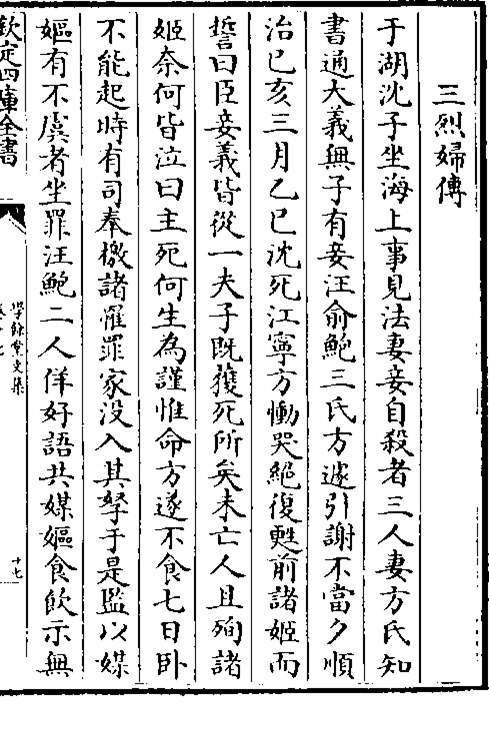 三烈婦傳
于湖沈子坐海上事見法妻妾自殺者三人妻方氏知
書通大義無子有妾汪俞鮑三氏方遽引謝不當夕順
治已亥三月乙巳沈死江寧方慟哭絕復甦前諸姬而
誓曰臣妾義皆從一夫子既獲死所矣未亡人且殉諸
姬奈何皆泣曰主死何生為謹惟命方遂不食七日卧
不能起時有司奉檄諸罹罪家没入其孥于是監以媒
嫗有不虞者坐罪汪鮑二人佯好語共媒嫗食飲示無
欽定四庫全書
學餘堂文集
卷十七
十七